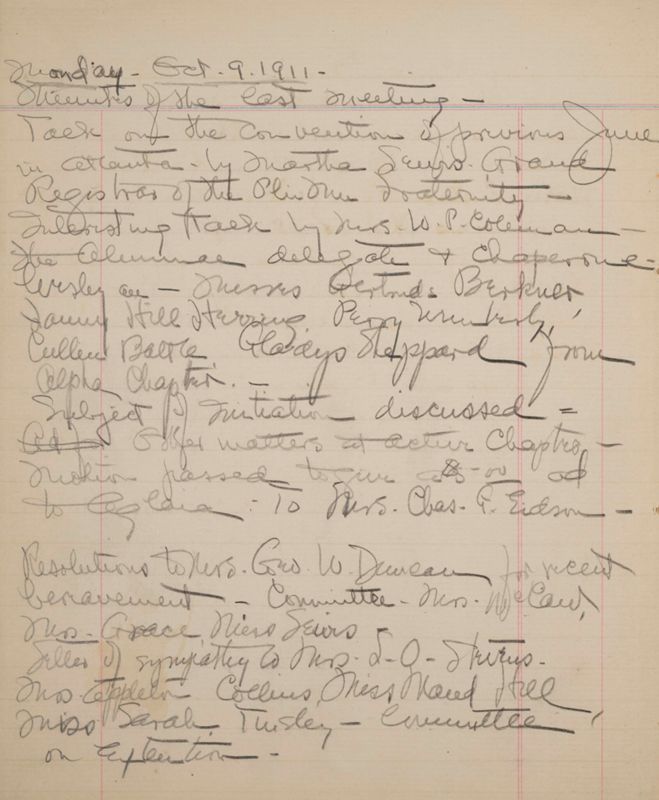 Monday - Oct. 9. 1911 -
Minutes of the last meeting -
Talk on the Convention of previous June
in Atlanta - by Martha Lewis. Grand
Registrar of the Phi Mu Fraternity -
Interesting talk by Mrs. W. P. Coleman -
the Alumnae delegate & Chaperone -
Wesleyan - Misses Gertrude Berkner
Fanny Hill Herring, Perry
Cullen Battle Gladys Sheppard from
Alpha Chapter. -
Subject of Initiation discussed =
Other matters at active Chapter -
Motion passed to give a 5.00 ad
to Aglaia - To Mrs. Chas. P. Eidson -
Resolutions to Mrs. Geo. W. Duncan for recent
bereavement - Committee - Mrs. McCaw,
Mrs. Grace Miss Lewis -
Letter of sympathy to Mrs. L. O. Stevens.
Mrs. Appleton Collins, Miss Maud Hill
Miss Sarah Tinsley - Committee
on Extention -